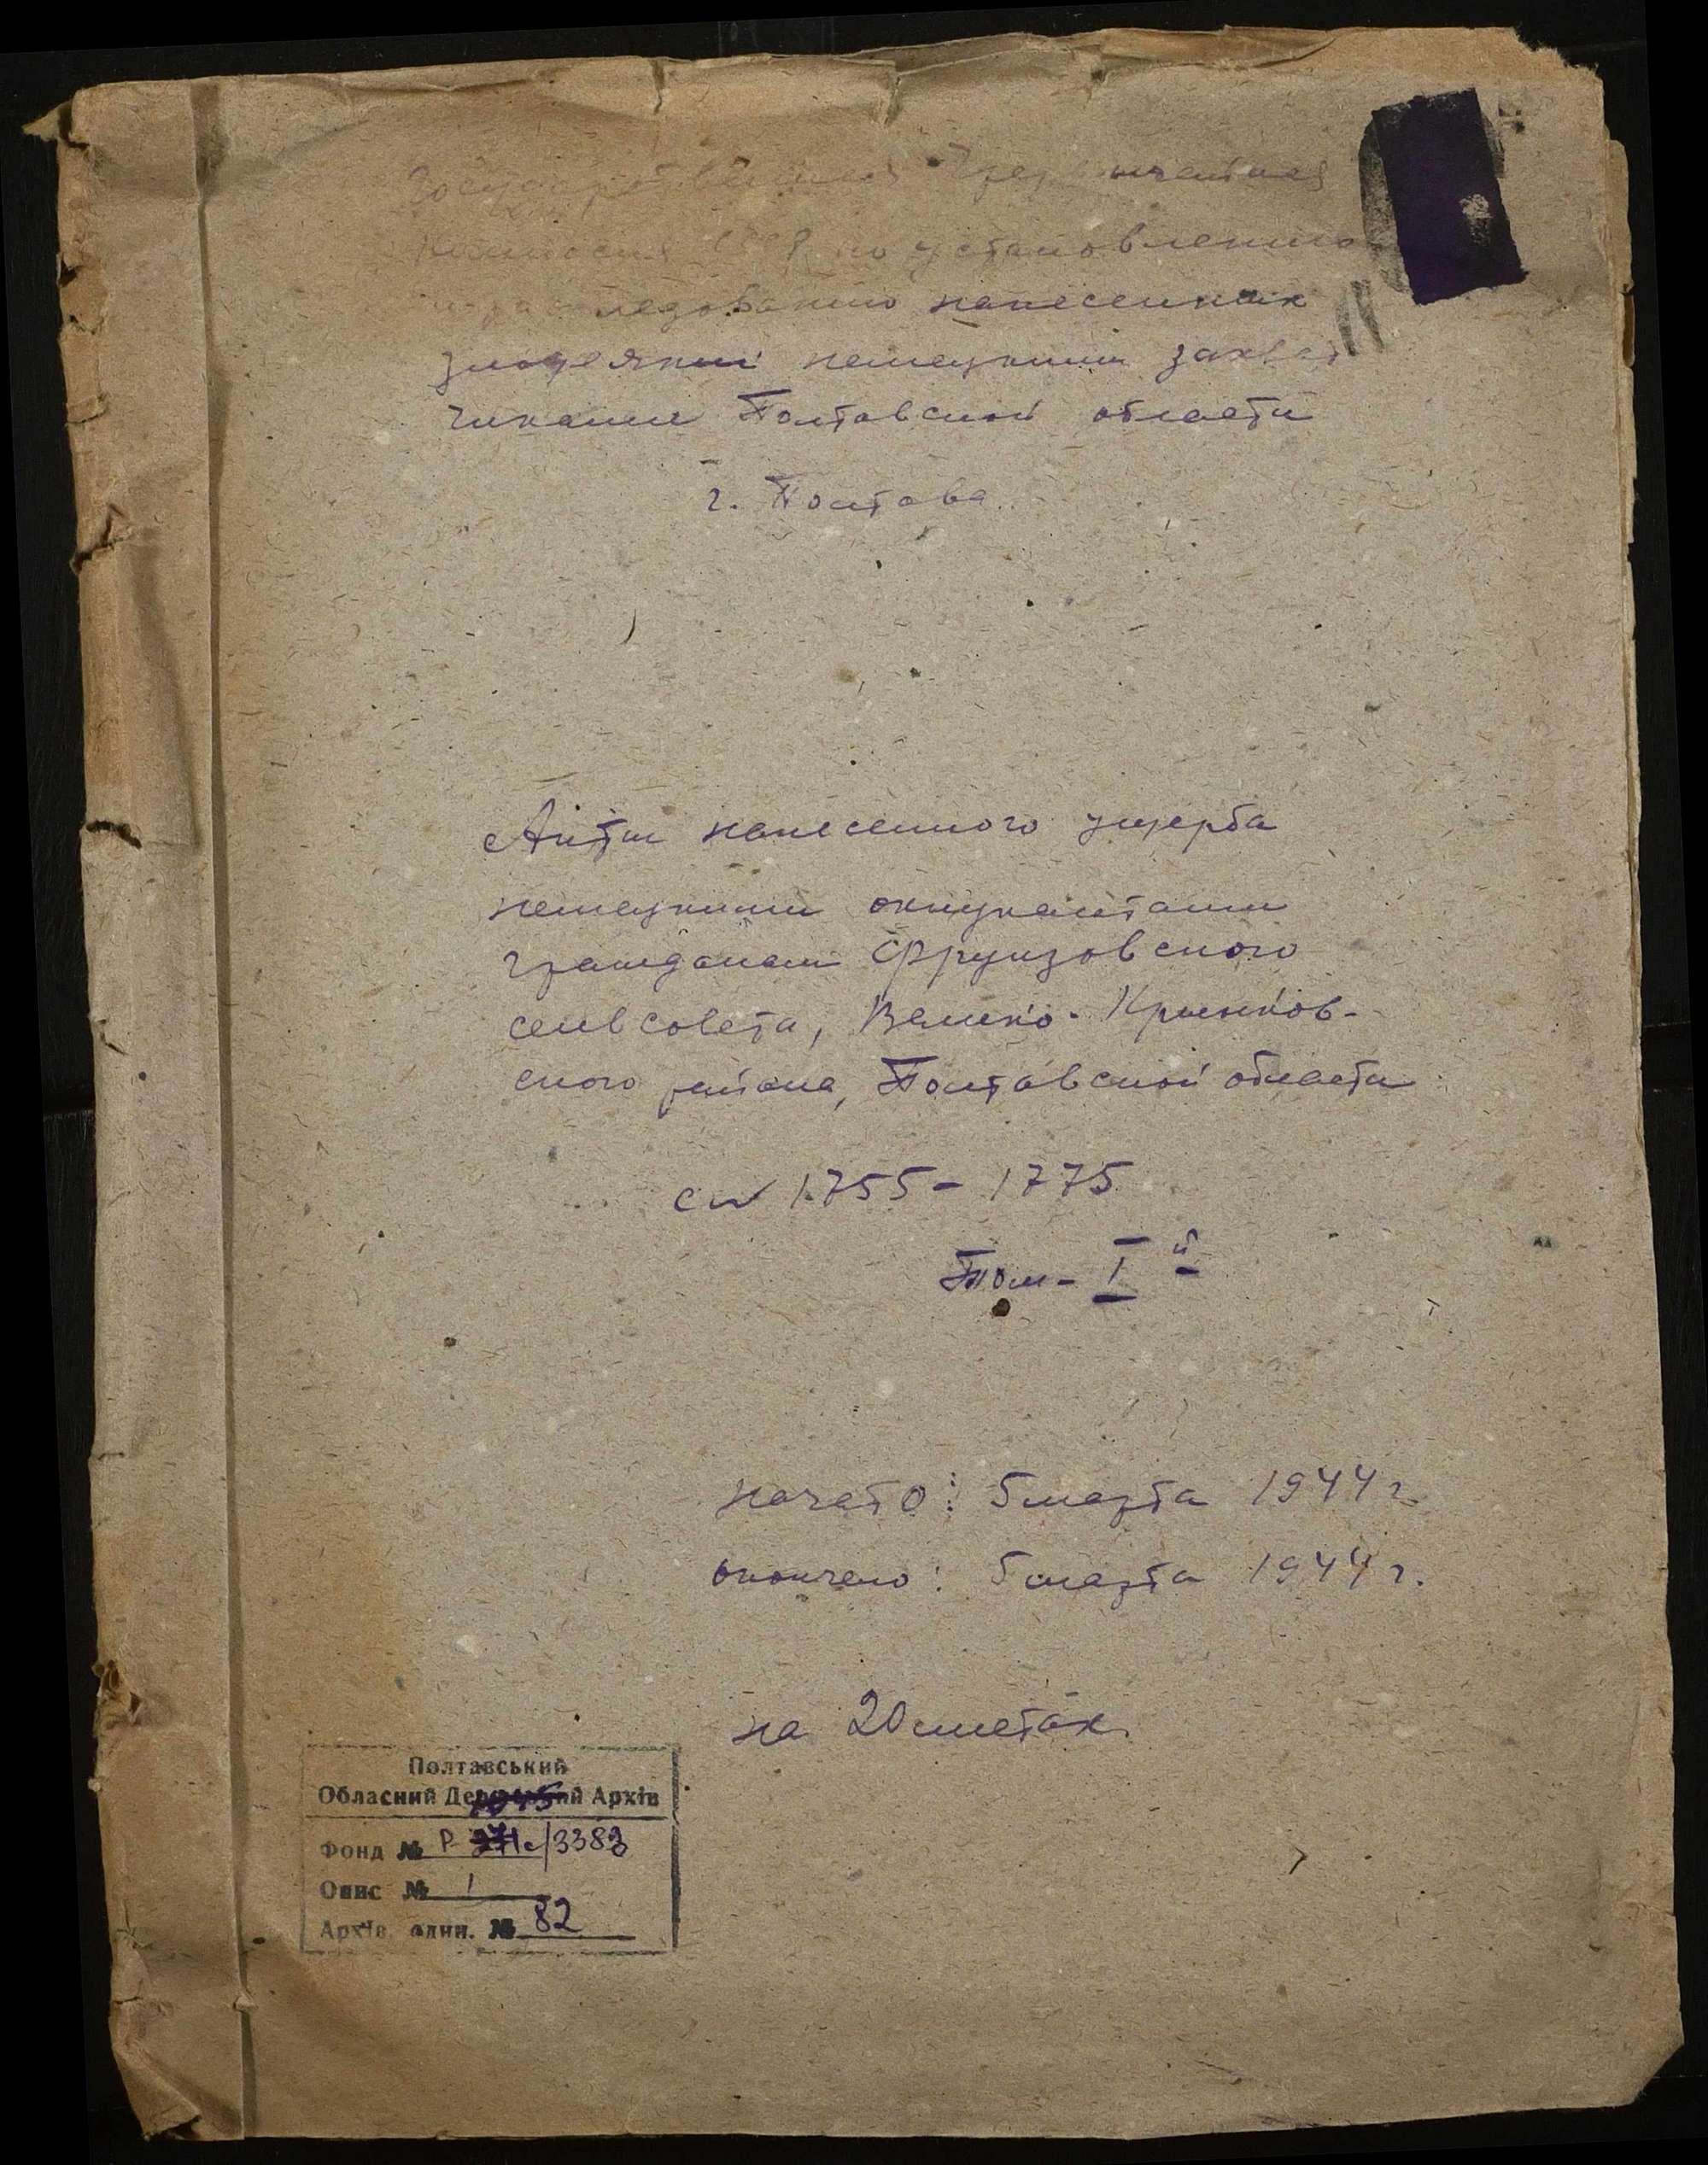 Государственная Чрезвычайная
комиссия СССР по установлению
и расследованию нанесенных
злодеяний немецкими захват
чиками Полтавской области
г. Полтава
Акты нанесенного ущерба
немецкими оккупантами
гражданам Фрунзовского
сельсовета, Велико-Крынков-
ского района, Полтавской области
с № 1755 - 1775
Том - I й
начато: 5 марта 1944 г.
окончено: 5 марта 1944 г.
на 20 листах.
Полтавський
Обласний Державний Архів
Фонд № Р 3383
Опис № 1
Архів. один. № 82